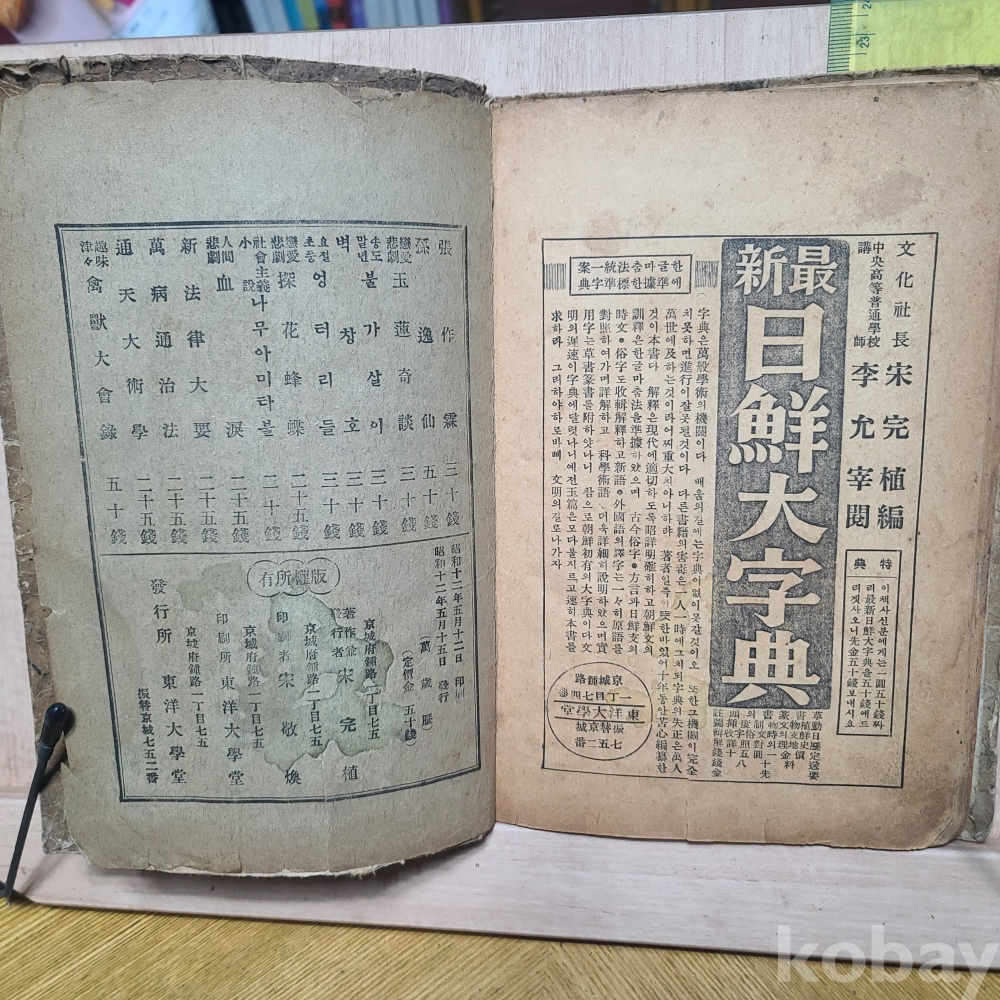 文化社長 宋完植編
中央高等普通學校
講師 李允宰閱
最新
日鮮大字典
한글마춤法統一案
에準據한標準字典
特典
이책사신분에게는一圓五十錢짜
리最新日鮮大字典을五十錢에드
리켓사오니先金五十錢보내시요
字典은萬般學術의機關이다 배움의길에는字典이없이못갈것이오 또한그機關이完全
치못하면進行이잘못될것이다 다른書籍의害毒은一人一時에그치되字典의失正은萬人
萬世에及하는것이라어찌重大치아니하랴 著者일즉이뜻한바잇어十年동안苦心編纂한
것이本書다 解釋은現代에適切하도록昭詳明確히하고朝鮮文의
訓釋은한글마춤法을準據하았으며 古今俗字·方言과日鮮支의
時文·俗字도收輯解釋하고新語·外國語의譯字는一々히原語를
對照하여가며詳解하고 科學術語 더욱詳細히說明하았으며實
用字는草書篆書를附하앗나니 참으로朝鮮初有의大字典이다文
明의遲速이字典에달렷나니예전玉篇은모다불지르고速히本書를
求하라 그리하야하로바삐 文明의길로나가자
京城鍾路
一丁目七四
東洋大學堂
振替京城
七五二番
張作霖 三十錢
孫逸仙 五十錢
戀愛悲劇 玉蓮奇談 三十錢
송도말년 불가살이 三十錢
벽창호 三十錢
요절초풍 엉터리들 三十錢
戀愛悲劇 探花蜂蝶 二十五錢
社會主義小說 나무아미타불 三十錢
人間悲劇 血淚 二十五錢
新法律大要 二十五錢
萬病通治法 二十五錢
通天大術學 二十五錢
趣味津々 禽獸大會錄 五十錢
萬歲曆
(定價金 五十錢)
昭和十二年五月十二日 印刷
昭和十二年五月十五日 發行
版權所有
京城府鍾路一丁目七五
著作兼發行者 宋完植
京城府鍾路一丁目七五
印刷者 宋敬煥
京城府鍾路一丁目七五
印刷所 東洋大學堂
京城府鍾路一丁目七五
發行所 東洋大學堂
振替京城七五二番
23
kobay